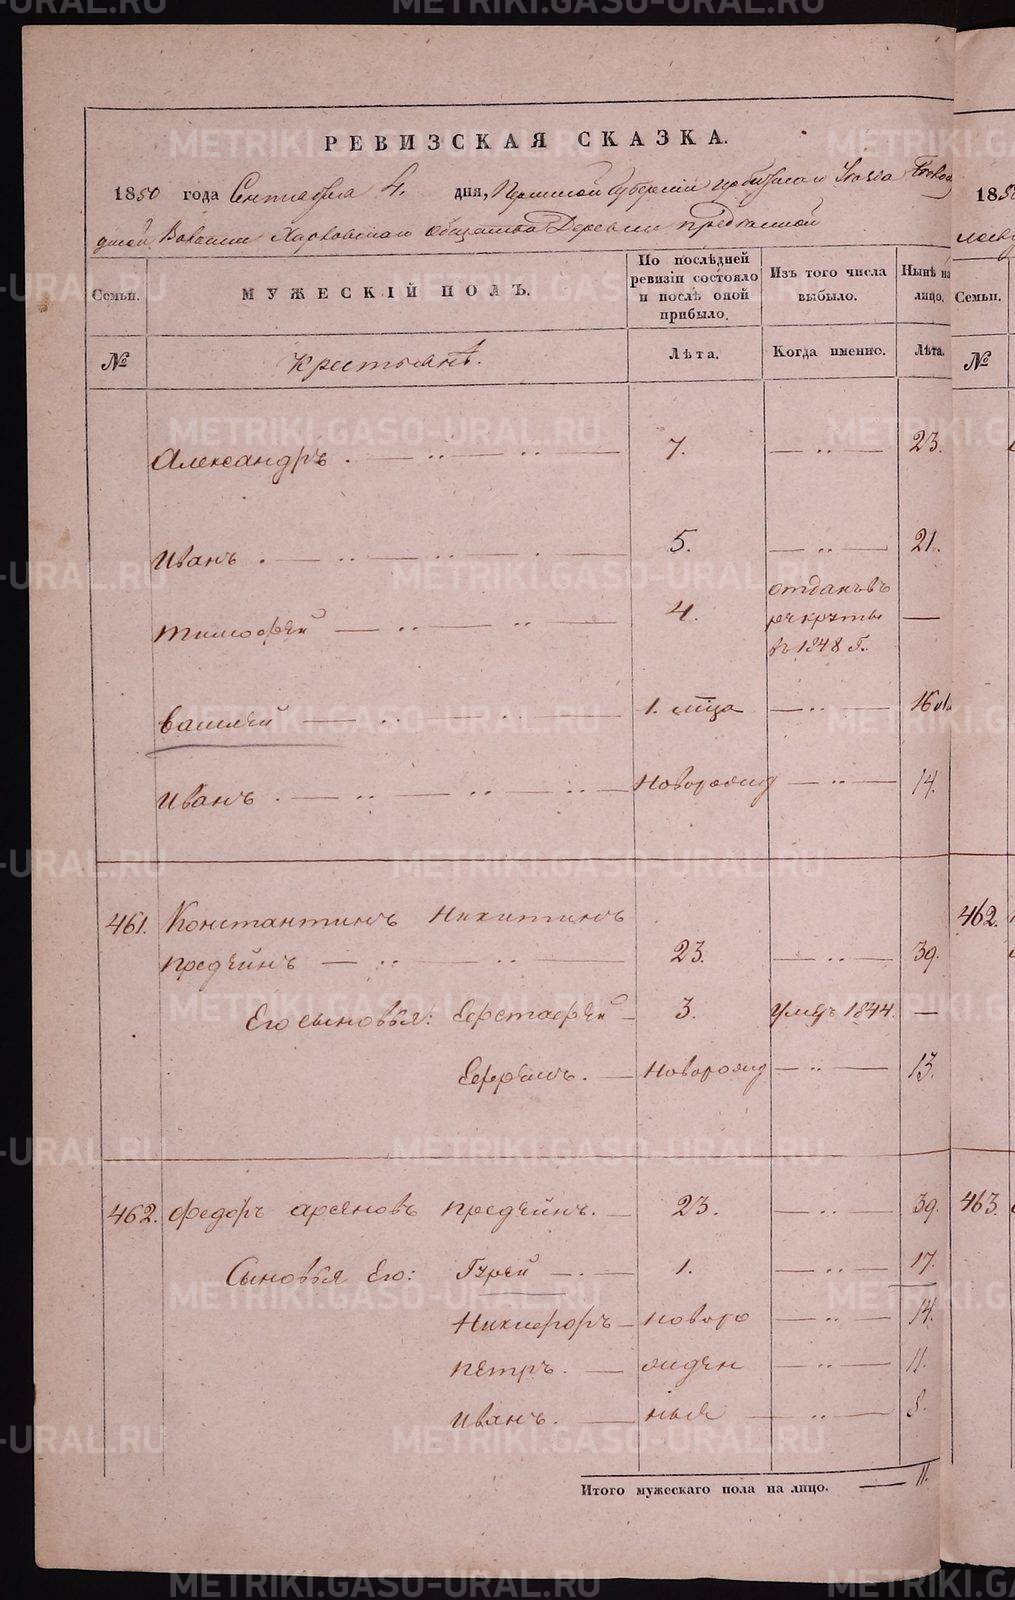 РЕВИЗСКАЯ СКАЗКА.
1850 года Сентября 4. дня, Пермской Губернии
Волости Харловскаго общества Деревни Предъиной
Семьи.
МУЖЕСКІЙ ПОЛЪ.
По послѣдней ревизіи состояло и послѣ оной прибыло.
Изъ того числа выбыло.
Нынѣ на лицо.
№
Крестьянѣ.
Лѣта.
Когда именно.
Лѣта.
Александръ . — 7. — 23.
Иванъ . — 5. — 21.
Тимофѣй — 4. отданъ въ рекруты въ 1848 г. —
Василѣй — 1. м͞ца — 16
Иванъ . — Новорожд — 14.
461. Константинъ Никитинъ
Предѣинъ — 23. — 39.
Его сыновья: Евстафѣй — 3. Умеръ 1844. —
Ефрѣмъ . — Новорожд — 13.
462. Федоръ Арсѣновъ Предѣинъ . — 23. — 39.
Сыновья Его: Гурѣй — 1. — 17.
Никифоръ — Новоро — 14.
Пѣтръ . — жден — 11.
Иванъ . — ныя — 8.
Итого мужескаго пола на лицо. — 11.
1850
Семьи.
№
462.
463.
METRIKI.GASO-URAL.RU